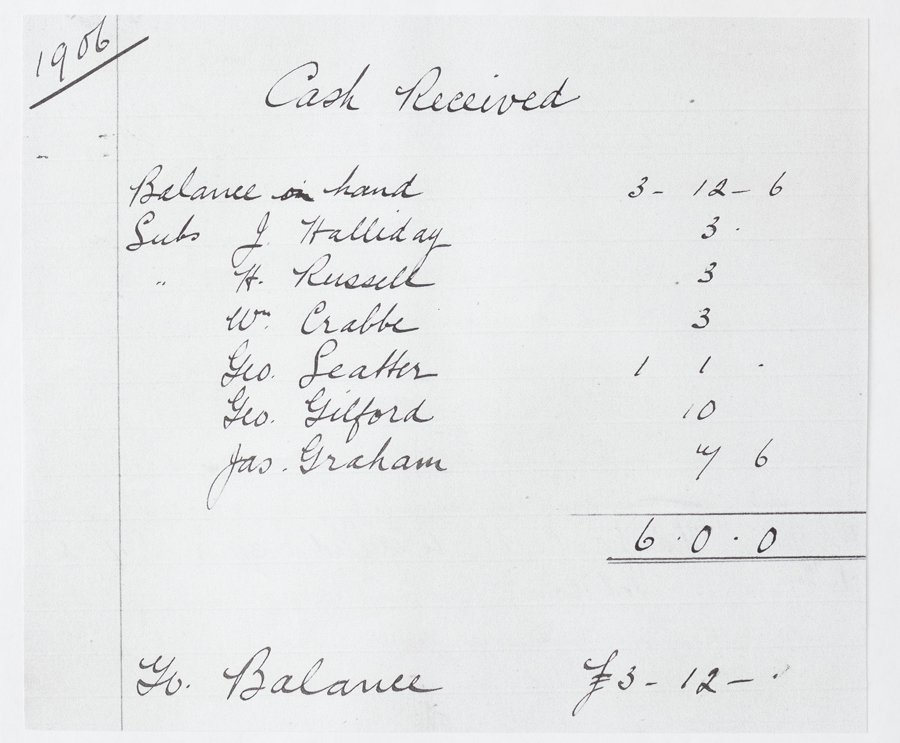 1906
Cash Received
Balance in hand 3 - 12 - 6
Subs J. Halliday 3 .
" H. Russell 3
Wm. Crabbe 3
Geo. Seatter 1 1 .
Geo. Gilford 10
Jas. Graham 7 6
6 . 0 . 0
To. Balance £3 - 12 - .